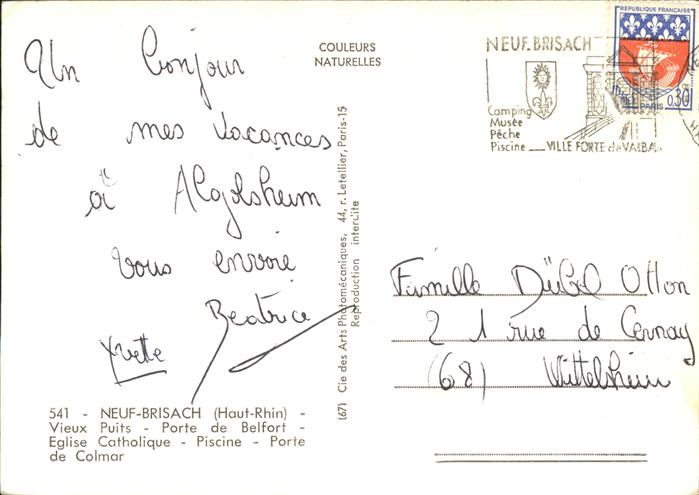 Un bonjour
de mes vacances
à Algolsheim
vous envoie
Béatrice
Yvette
541 - NEUF-BRISACH (Haut-Rhin) -
Vieux Puits - Porte de Belfort -
Eglise Catholique - Piscine - Porte
de Colmar
COULEURS
NATURELLES
(67) Cie des Arts Photomécaniques, 44, r. Letellier, Paris-15
Reproduction interdite
NEUF-BRISACH
Camping
Musée
Pêche
Piscine
VILLE FORTE de VAUBAN
REPUBLIQUE FRANÇAISE
PARIS
0,30
Famille Dübel Otton
21 rue de Cernay
(68) Wittelsheim